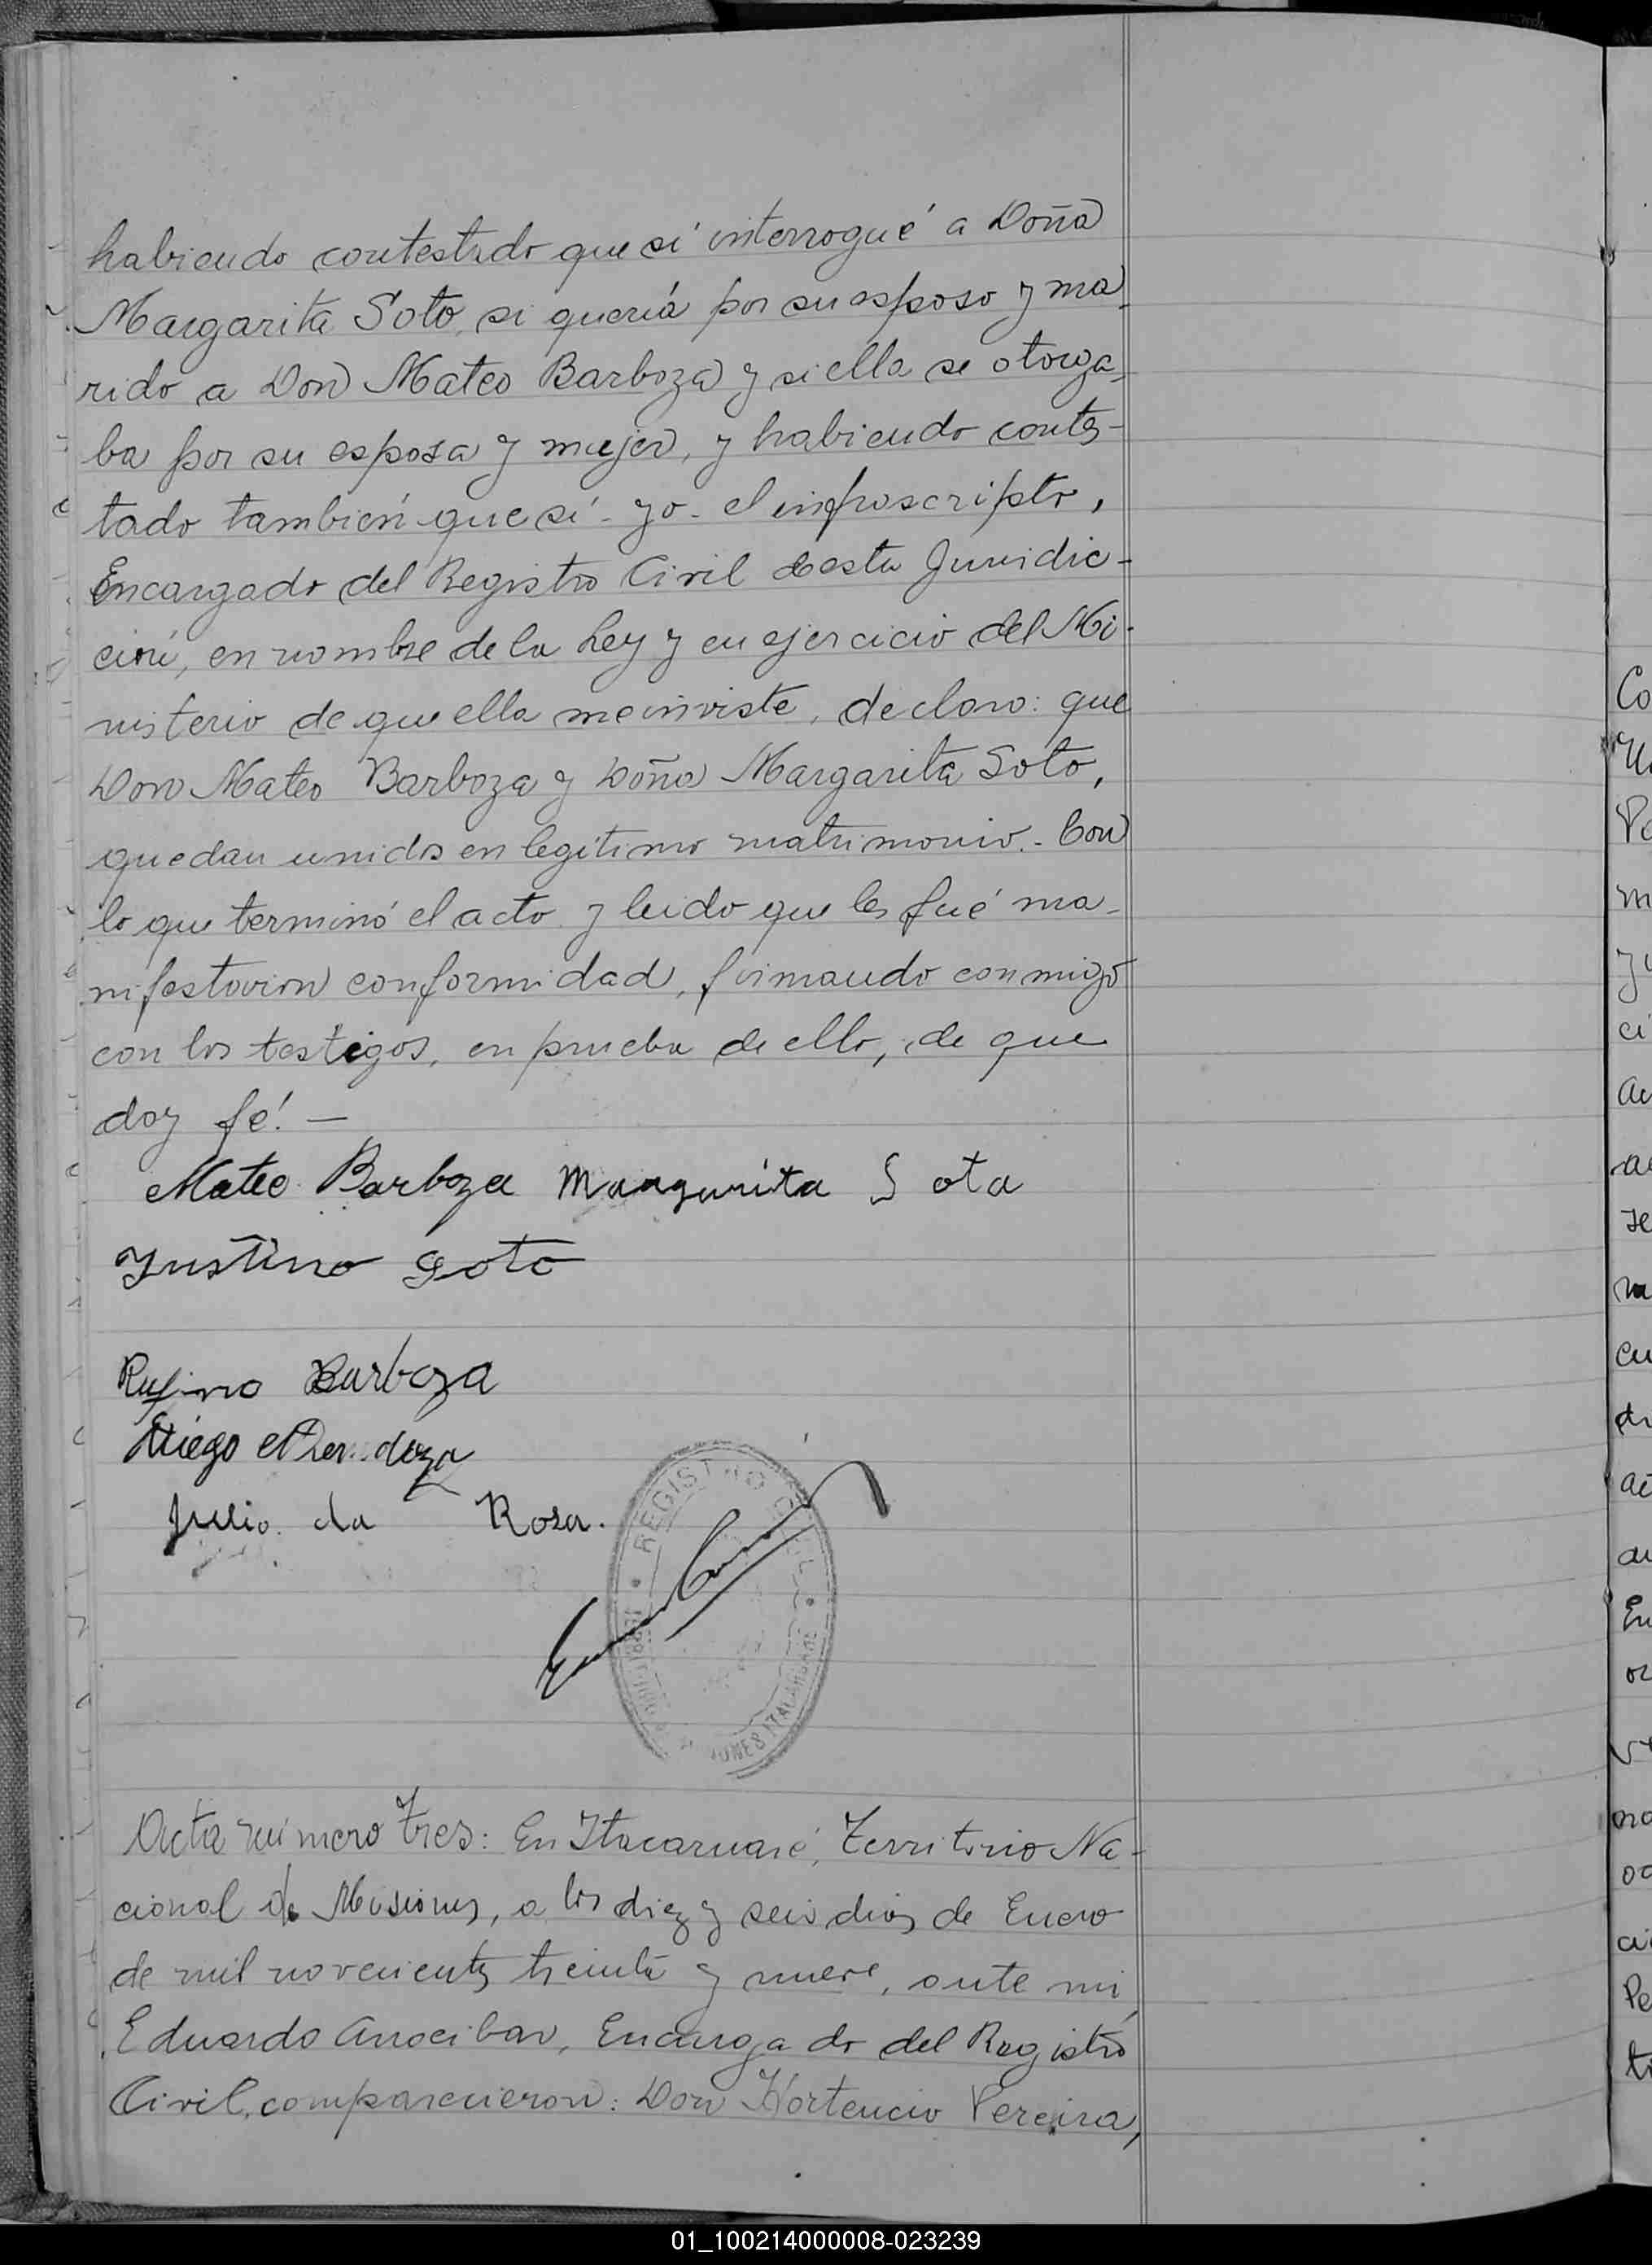 habiendo contestado que sí interrogué a Doña
Margarita Soto, si quería por su esposo y ma-
rido a Don Mateo Barboza y si ella se otorga-
ba por su esposa y mujer, y habiendo contes-
tado también que sí - yo - el infrascripto,
Encargado del Registro Civil desta Juridic-
ción, en nombre de la Ley y en ejercicio del Mi-
nisterio de que ella me inviste, declaro: que
Don Mateo Barboza y Doña Margarita Soto,
quedan unidos en legítimo matrimonio. - Con
lo que terminó el acto y leido que les fué ma-
nifestaron conformidad, firmando conmigo
con los testigos, en prueba de ello, de que
doy fé! —
Mateo Barboza Margarita Sota
Justino Soto
Rufino Barboza
Diego Mendoza
Julio da Rosa.
REGISTRO CIVIL
Acta número tres: En Itacaruaré, Territorio Na-
cional de Misiones, a los diez y seis dias de Enero
de mil novecientos treinta y nueve, ante mi,
Eduardo Arocibar, Encargado del Registro
Civil, comparecieron: Don Hortencio Pereira,
Co
Pe
m
ci
a
se
cu
En
ve
no
Pe
ti
01_100214000008-023239